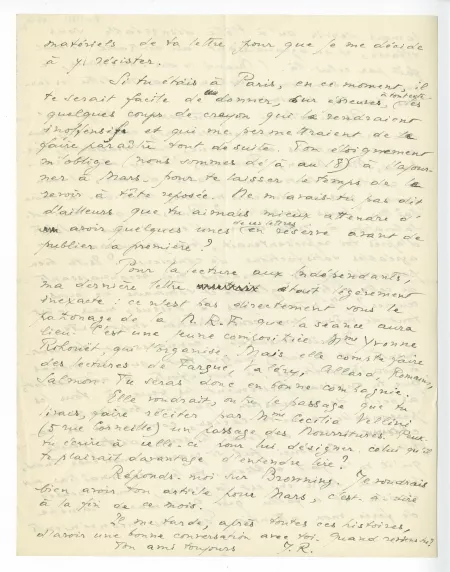 matériels de ta lettre pour que je me décide
à y résister.
Si tu étais à Paris, en ce moment, il
te serait facile de me donner, sur épreuves, les
quelques coups de crayon qui la rendraient
inoffensive et qui me permettraient de la
faire paraître tout de suite. Ton éloignement
m'oblige (nous sommes déjà au 18) à l'ajour-
ner à Mars, pour te laisser le temps de la
revoir à tête reposée. Ne m'avais-tu pas dit
d'ailleurs que tu aimais mieux attendre d'
avoir quelques unes de ces lettres en réserve avant de
publier la première ?
Pour la lecture aux Indépendants,
ma dernière lettre était légèrement
inexacte : ce n'est pas directement sous le
patronage de la N.R.F. que la séance aura
lieu. C'est une jeune compositrice Mme Yvonne
qui l'organise. Mais elle compte faire
des lectures de Fargue, Valéry, Allard, Romains,
Salmon. Tu seras donc en bonne compagnie.
Elle voudrait, ou le passage que tu
faire réciter par Mme Cecilia Vellini
(5 rue Corneille) un passage des Nourritures. Peux-
tu écrire à celle-ci pour lui désigner celui qu'il
te plairait davantage d'entendre lire ?
Réponds-moi sur Browning. Je voudrais
bien avoir ton article pour Mars, c'est-à-dire
à la fin de ce mois.
Il me tarde, après toutes ces histoires,
d'avoir une bonne conversation avec toi. Quand reviens-tu ?
Ton ami toujours J.R.